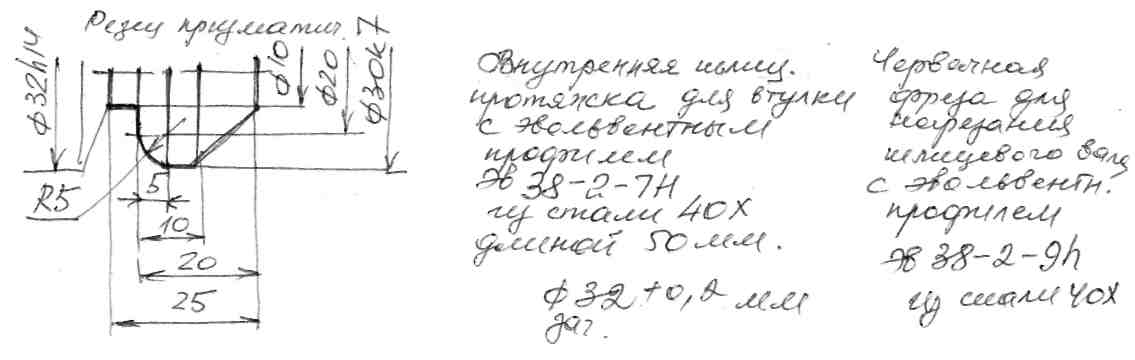 Резец призматич.
ϕ32h14
ϕ10
ϕ20
ϕ30k7
R5
5
10
20
25
Внутренняя шлиц.
протяжка для втулки
с эвольвентным
профилем
Эв 38-2-7H
из стали 40Х
длиной 50 мм.
ϕ32+0,2 мм
заг.
Червячная
фреза для
нарезания
шлицевого вала
с эвольвентн.
профилем
Эв 38-2-9h
из стали 40Х